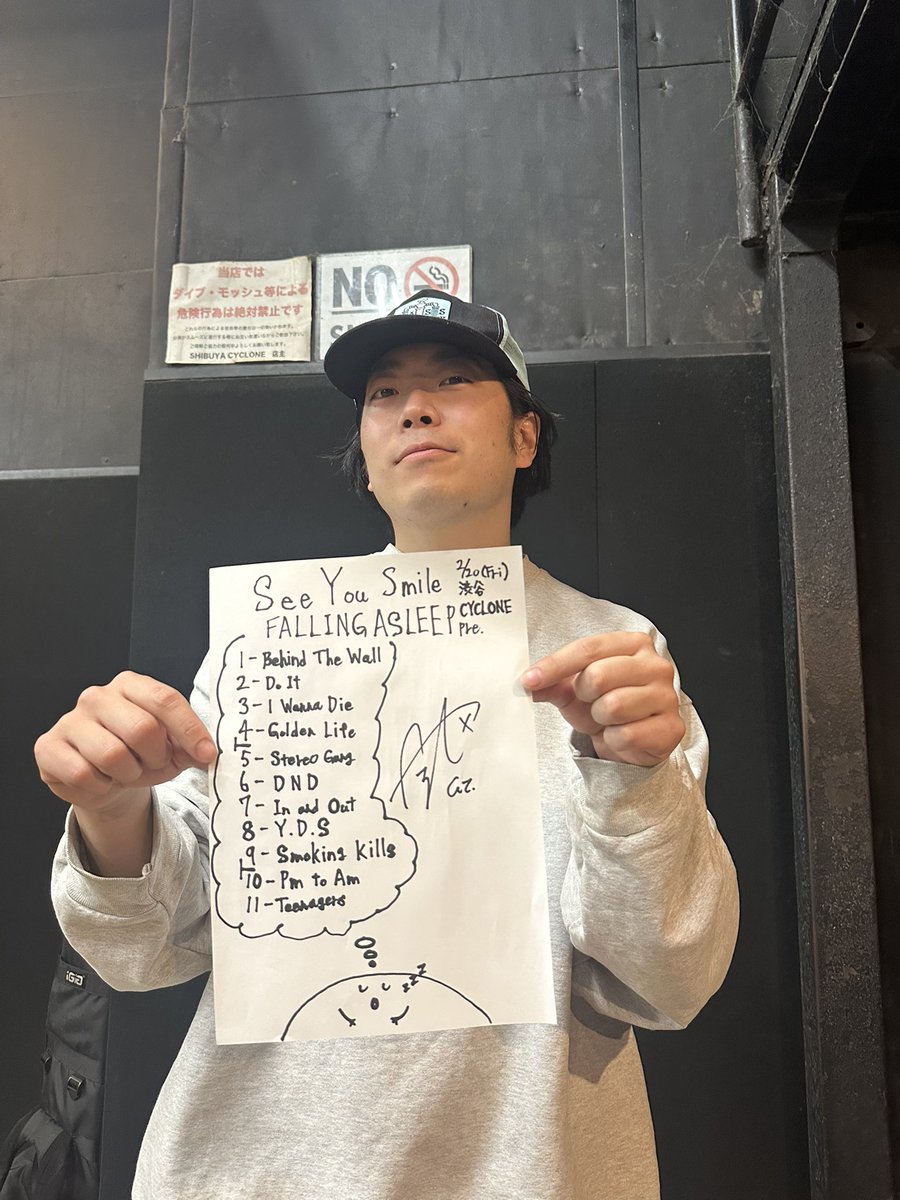 当店では
ダイブ・モッシュ等による
危険行為は絶対禁止です
SHIBUYA CYCLONE 店主
NO
See You Smile
2/20(Fri)
渋谷
CYCLONE
Pre.
FALLING ASLEEP
1 - Behind The Wall
2 - Do It
3 - I Wanna Die
4 - Golden Life
5 - Stereo Gang
6 - DND
7 - In and Out
8 - Y.D.S
9 - Smoking Kills
10 - Pm to Am
11 - Teenagers
Gt.
zzz